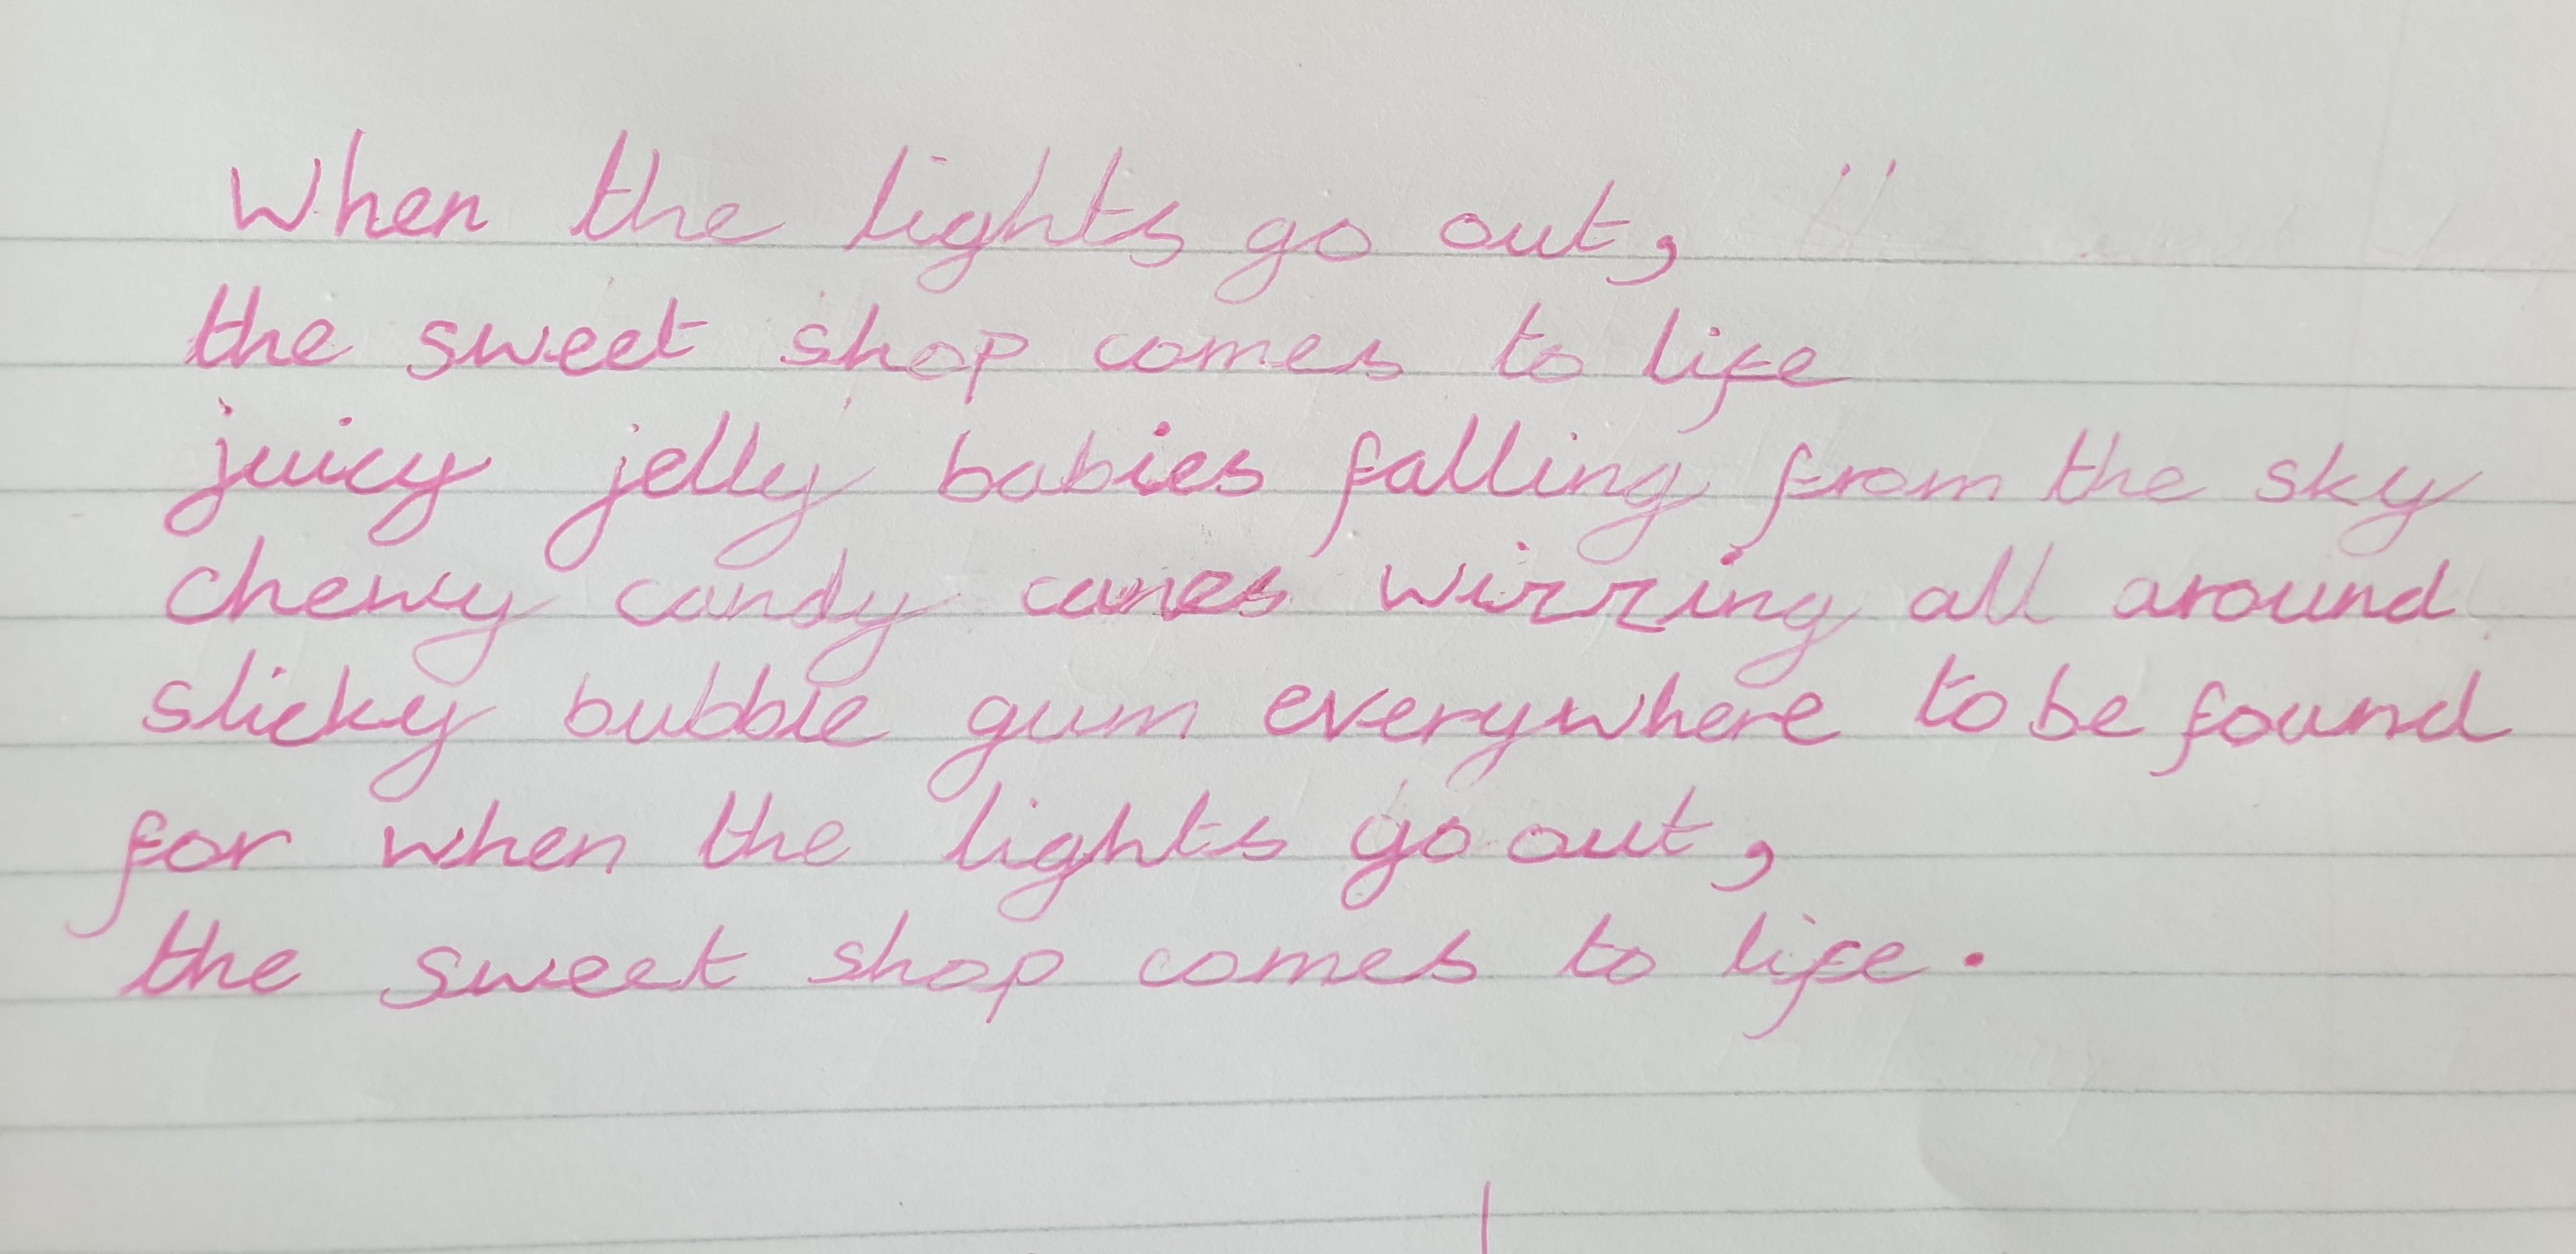 When the lights go out,
the sweet shop comes to life
juicy jelly babies falling from the sky
chewy candy canes wizzing all around
sticky bubble gum everywhere to be found
for when the lights go out,
the sweet shop comes to life.